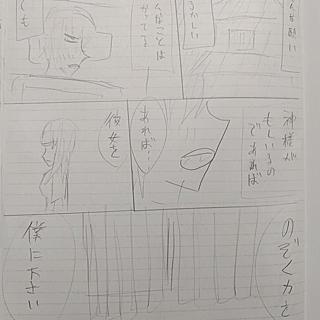 んな願い
るかしい
んなことは
かってる
ても
神様が
もしいるの
であれば
あれば…
彼女を
のぞく力を
僕に下さい